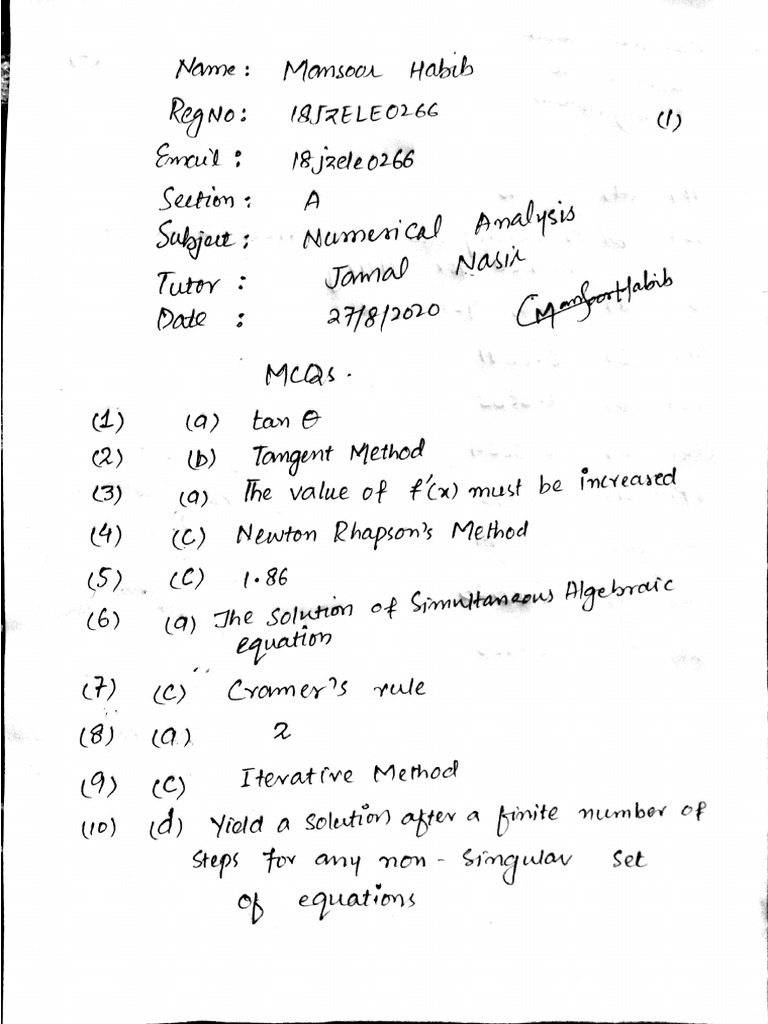 Name: Mansoor Habib
Reg No: 18JZELE0266
(1)
Email: 18jzele0266
Section: A
Subject: Numerical Analysis
Tutor: Jamal Nasir
Date: 27/8/2020
Mansoor Habib
MCQs.
(1) (a) tan θ
(2) (b) Tangent Method
(3) (a) The value of f'(x) must be increased
(4) (C) Newton Rhapson's Method
(5) (C) 1.86
(6) (a) The solution of Simultaneous Algebraic
equation
(7) (C) Cramer's rule
(8) (a) 2
(9) (C) Iterative Method
(10) (d) Yield a solution after a finite number of
steps for any non-singular set
of equations